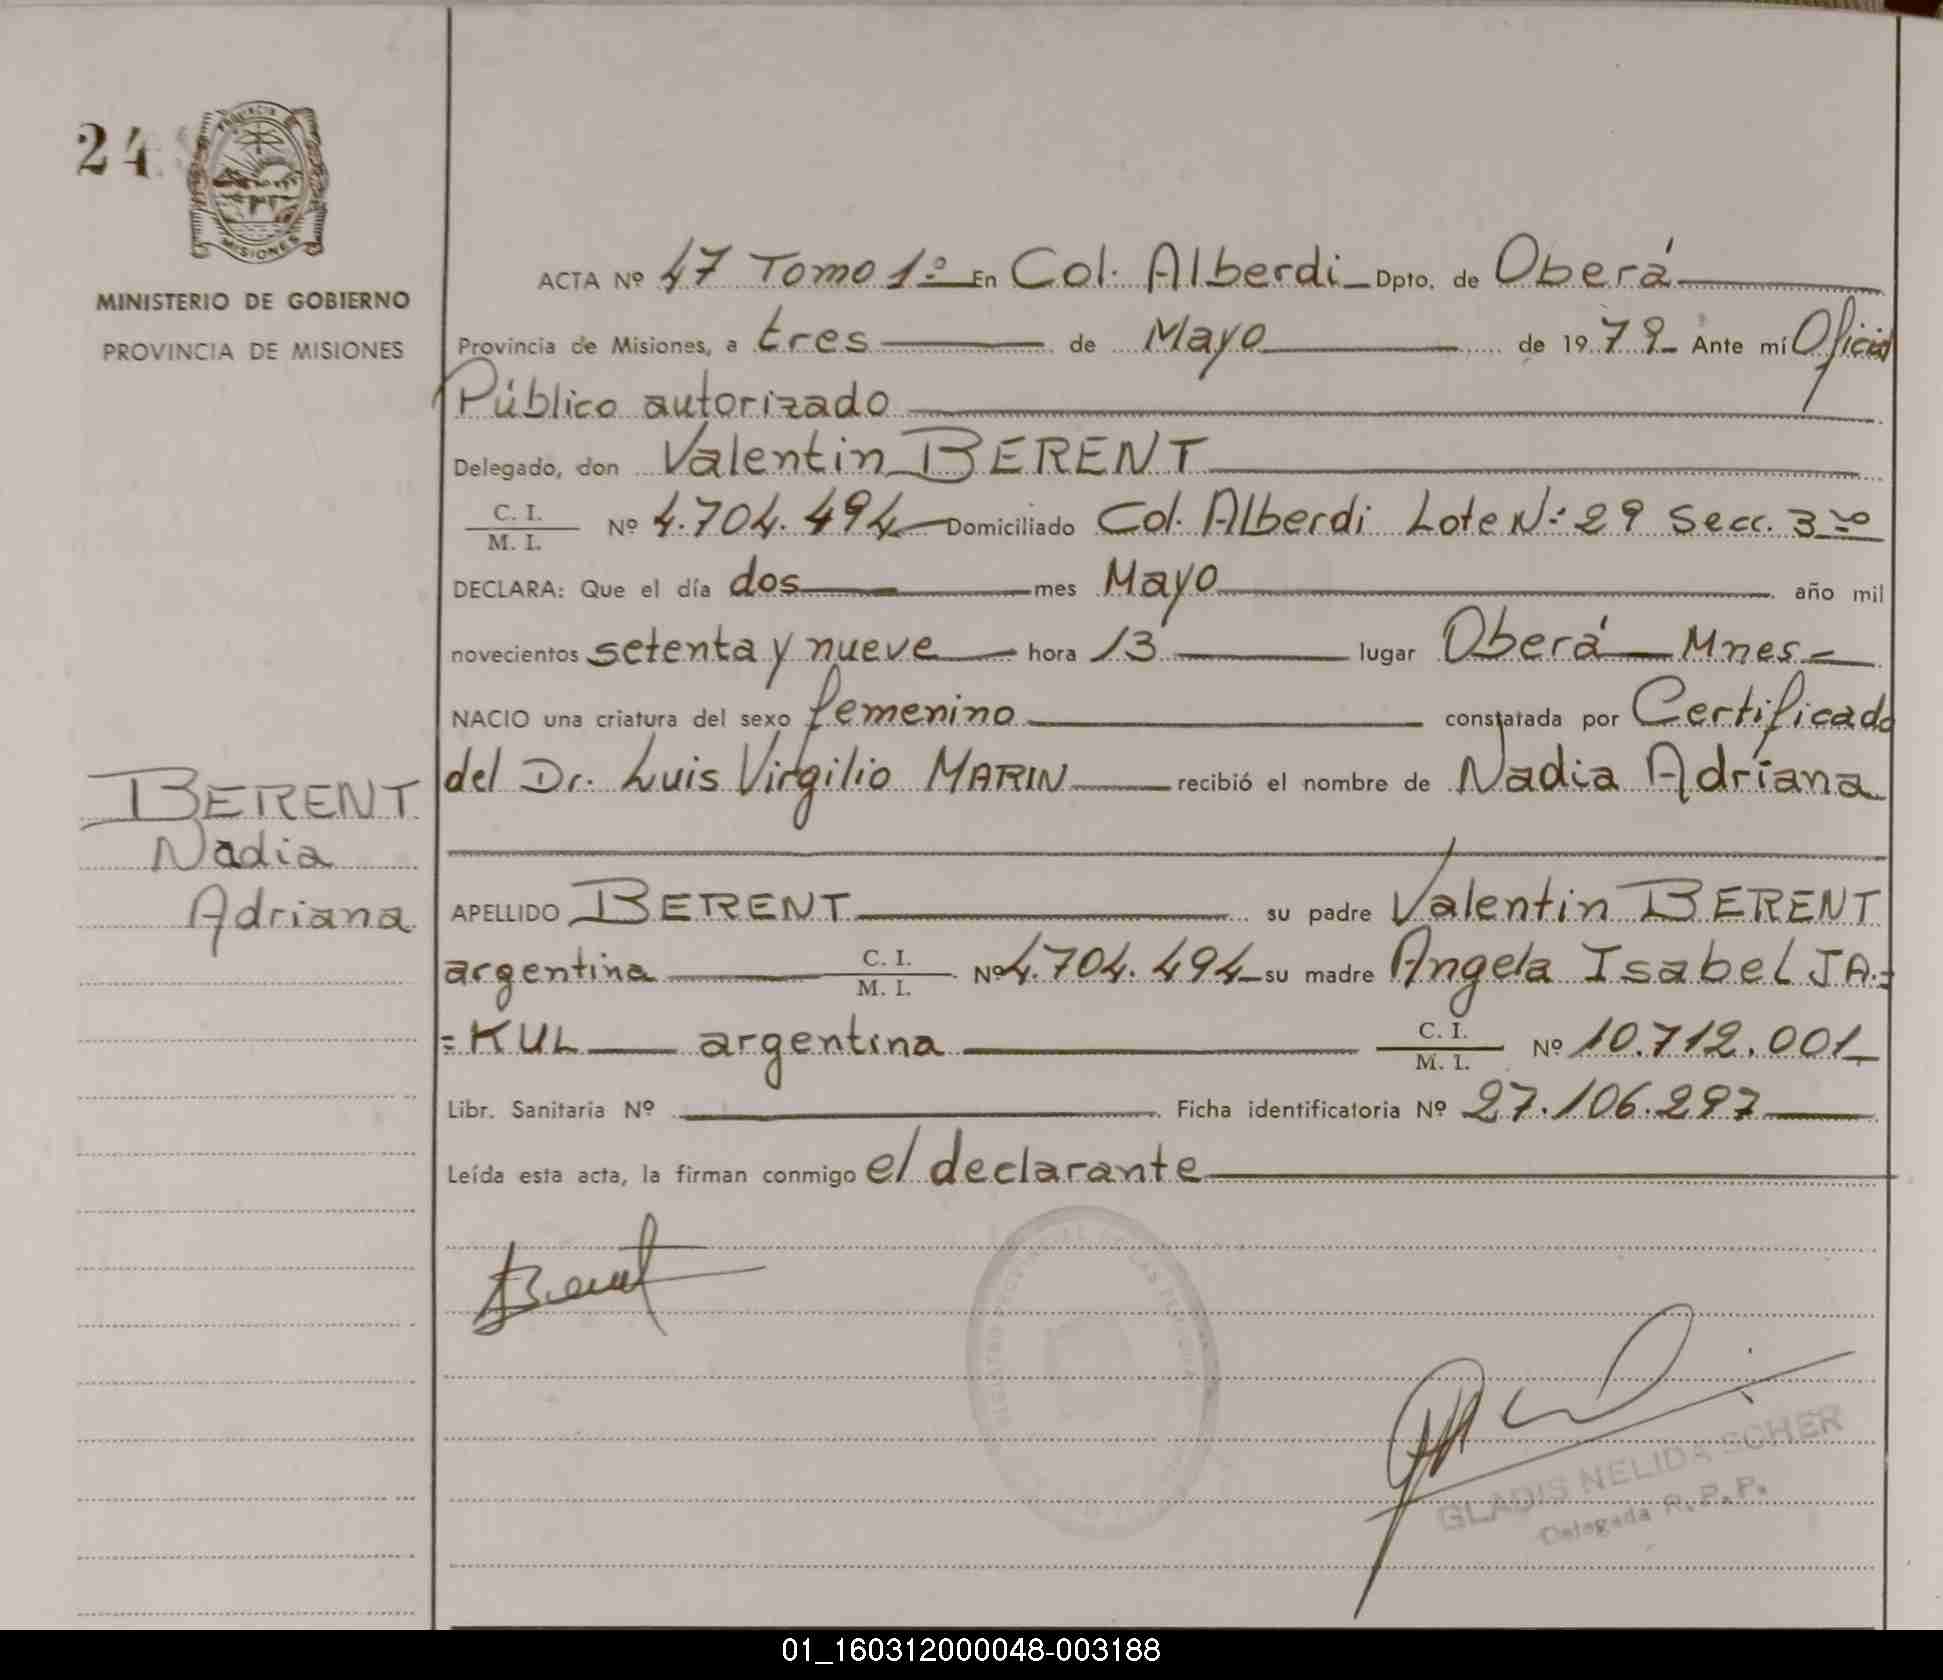 24
PROVINCIA DE
MISIONES
MINISTERIO DE GOBIERNO
PROVINCIA DE MISIONES
BERENT
Nadia
Adriana
ACTA Nº 47 Tomo 1º En Col. Alberdi Dpto. de Oberá
Provincia de Misiones, a tres de Mayo de 1979 Ante mí Oficial
Público autorizado
Delegado, don Valentin BERENT
C. I.
M. I. Nº 4.704.494 Domiciliado Col. Alberdi Lote Nº 29 Secc. 3º
DECLARA: Que el día dos mes Mayo año mil
novecientos setenta y nueve hora 13 lugar Oberá Mnes
NACIO una criatura del sexo femenino constatada por Certificado
del Dr. Luis Virgilio MARIN recibió el nombre de Nadia Adriana
APELLIDO BERENT su padre Valentin BERENT
argentina C. I. M. I. Nº 4.704.494 su madre Angela Isabel JA=
=KUL argentina C. I. M. I. Nº 10.712.001
Libr. Sanitaria Nº Ficha identificatoria Nº 27.106.297
Leída esta acta, la firman conmigo el declarante
Berent
GLADIS NELIDA SCHER
Delegada R.P.P.
01_160312000048-003188